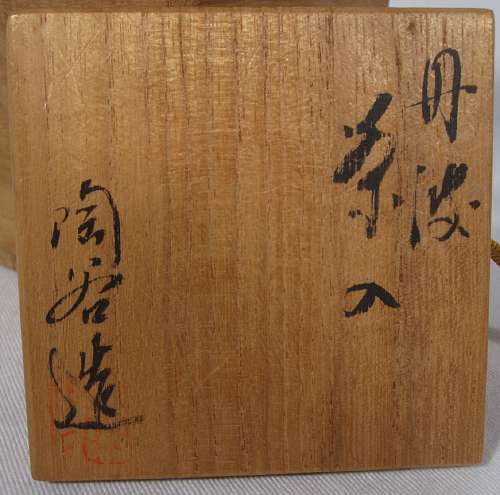 丹波
茶入
陶谷造